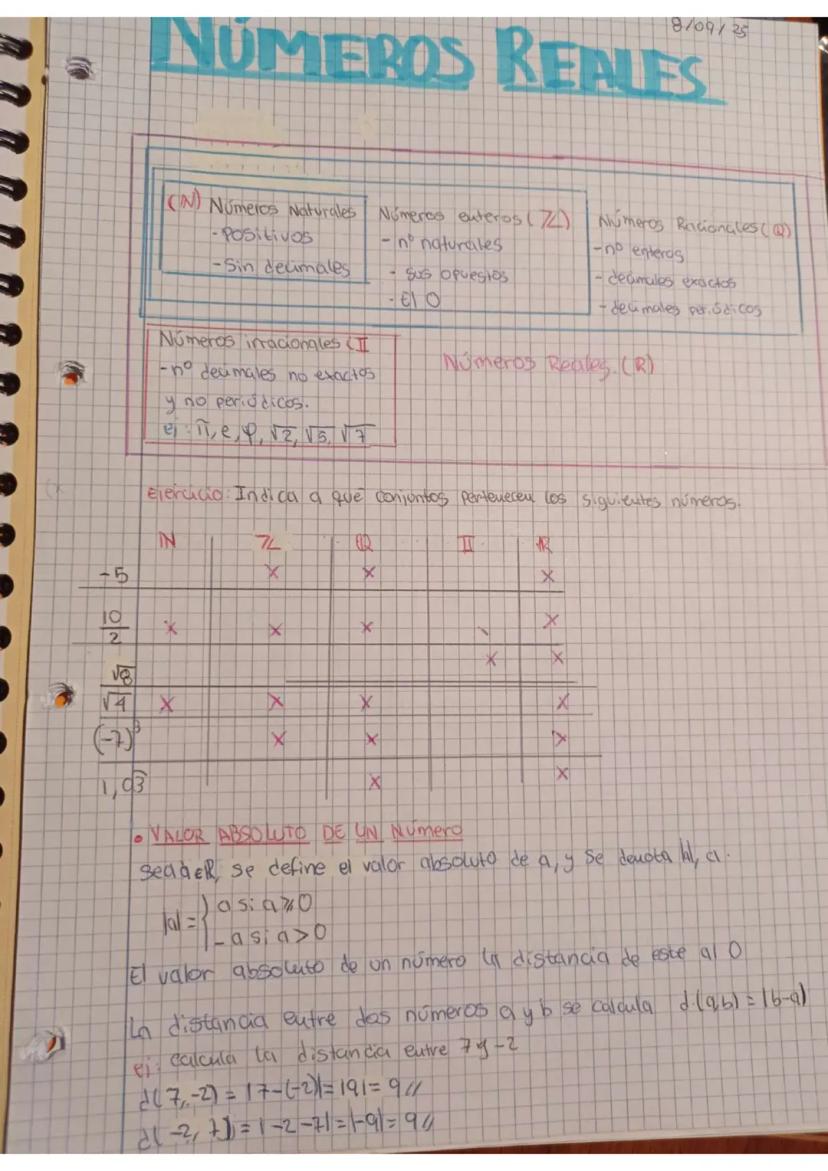 8/09/25
NÚMEROS REALES
(N) Números Naturales
- Positivos
- Sin decimales
Números enteros (ℤ)
- nº naturales
- sus opuestos
- El 0
Números Racionales (ℚ)
- nº enteros
- decimales exactos
- decimales periódicos
Números irracionales (II
- nº decimales no exactos
y no periódicos.
ej: π, e, φ, √2, √5, √7
Números Reales. (R)
Ejercicio: Indica a qué conjuntos pertenecen los siguientes números.
ℕ ℤ ℚ II ℝ
-5 x x x
10/2 x x x x
√8 x x
√4 x x x x
(-7)³ x x x
1,03 x x
• VALOR ABSOLUTO DE UN Número
Sea a∈R, se define el valor absoluto de a, y se denota a.
|a| = { a si a≥0
-a si a>0
El valor absoluto de un número la distancia de este al 0
La distancia entre dos números a y b se calcula d(a,b) = |b-a)
ej: calcula la distancia entre 7 y -2
d(7,-2) = |7-(-2)| = |9| = 9//
d(-2, 7)| = |-2-7| = |-9| = 9//